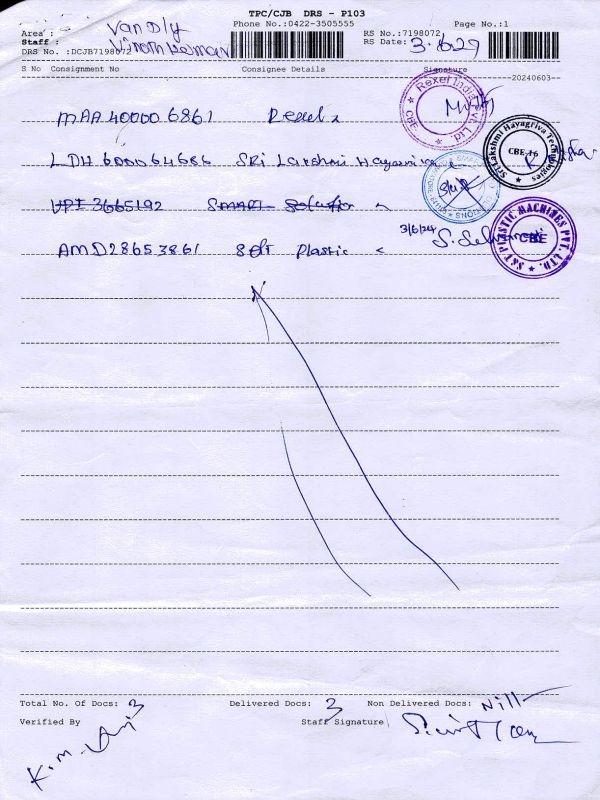 TPC/CJB DRS - P103
Phone No.:0422-3505555
Page No.:1
Area : Van Dly
Staff :
DRS No. :DCJB7198072
RS No.:7198072
RS Date: 3.6.29
S No Consignment No Consignee Details Signature
20240603
MAA400006861 Rexel
LDH600064686 SRi Lakshmi Hayagriva
VPI3665192 SMART Solution
AMD28653861 S&T Plastic
3/6/24
Rexel India Pvt. Ltd.
CBE
Sri Lakshmi Hayagriva Technologies
CBE-16
S&T PLASTIC MACHINES PVT. LTD.
CBE
Total No. Of Docs: 3 Delivered Docs: 3 Non Delivered Docs: Nill
Verified By Staff Signature
K.m.